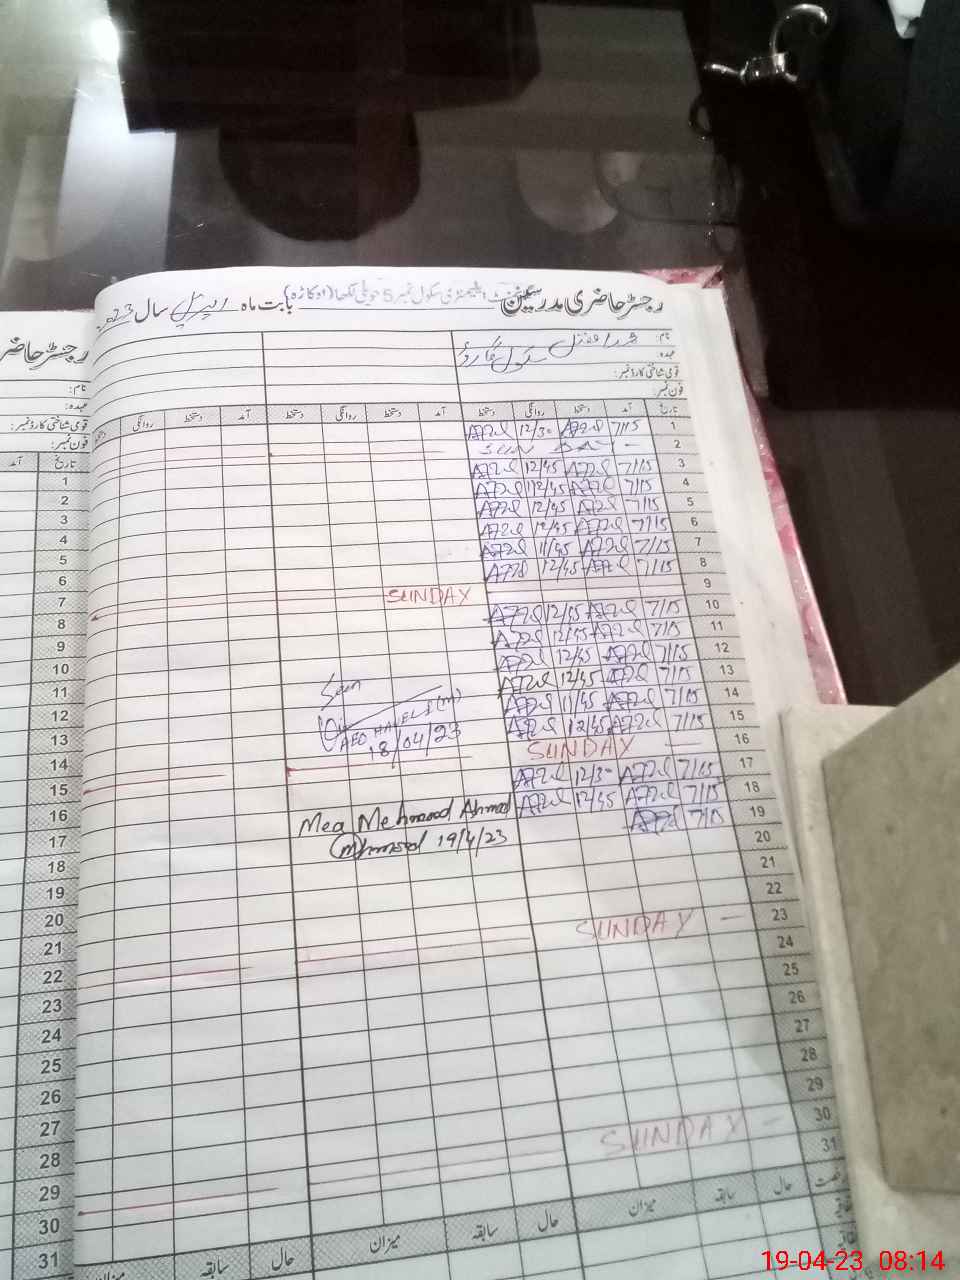 رجسٹر حاضری مدرسین گورنمنٹ ایلیمنٹری سکول نمبر 5 حویلی لکھا (اوکاڑہ) بابت ماہ اپریل سال 2023
رجسٹر حاضر
نام:
عہدہ: سکول گارڈ
قومی شناختی کارڈ نمبر:
فون نمبر:
تاریخ آمد دستخط روانگی دستخط آمد دستخط روانگی دستخط آمد دستخط روانگی دستخط
1 7/15 12/30
2 SUN DAY
3 7/15 12/45
4 7/15 12/45
5 7/15 12/45
6 7/15 12/45
7 7/15 11/45
8 7/15 12/45
9 SUNDAY
10 7/15 12/45
11 7/15 12/45
12 7/15 12/45
13 7/15 12/45
14 7/15 11/45
15 7/15 12/45
16 SUNDAY
17 7/15 12/30
18 7/15 12/45
19 7/15
20
21
22
23 SUNDAY
24
25
26
27
28
29
30 SUNDAY
31
Seen
AEO HAVELI (M)
18/04/23
Mea Mehmood Ahmad
19/4/23
حال سابقہ میزان حال سابقہ میزان حال سابقہ میزان
نام:
عہدہ:
قومی شناختی کارڈ نمبر:
فون نمبر:
تاریخ آمد
1
2
3
4
5
6
7
8
9
10
11
12
13
14
15
16
17
18
19
20
21
22
23
24
25
26
27
28
29
30
31
19-04-23 08:14